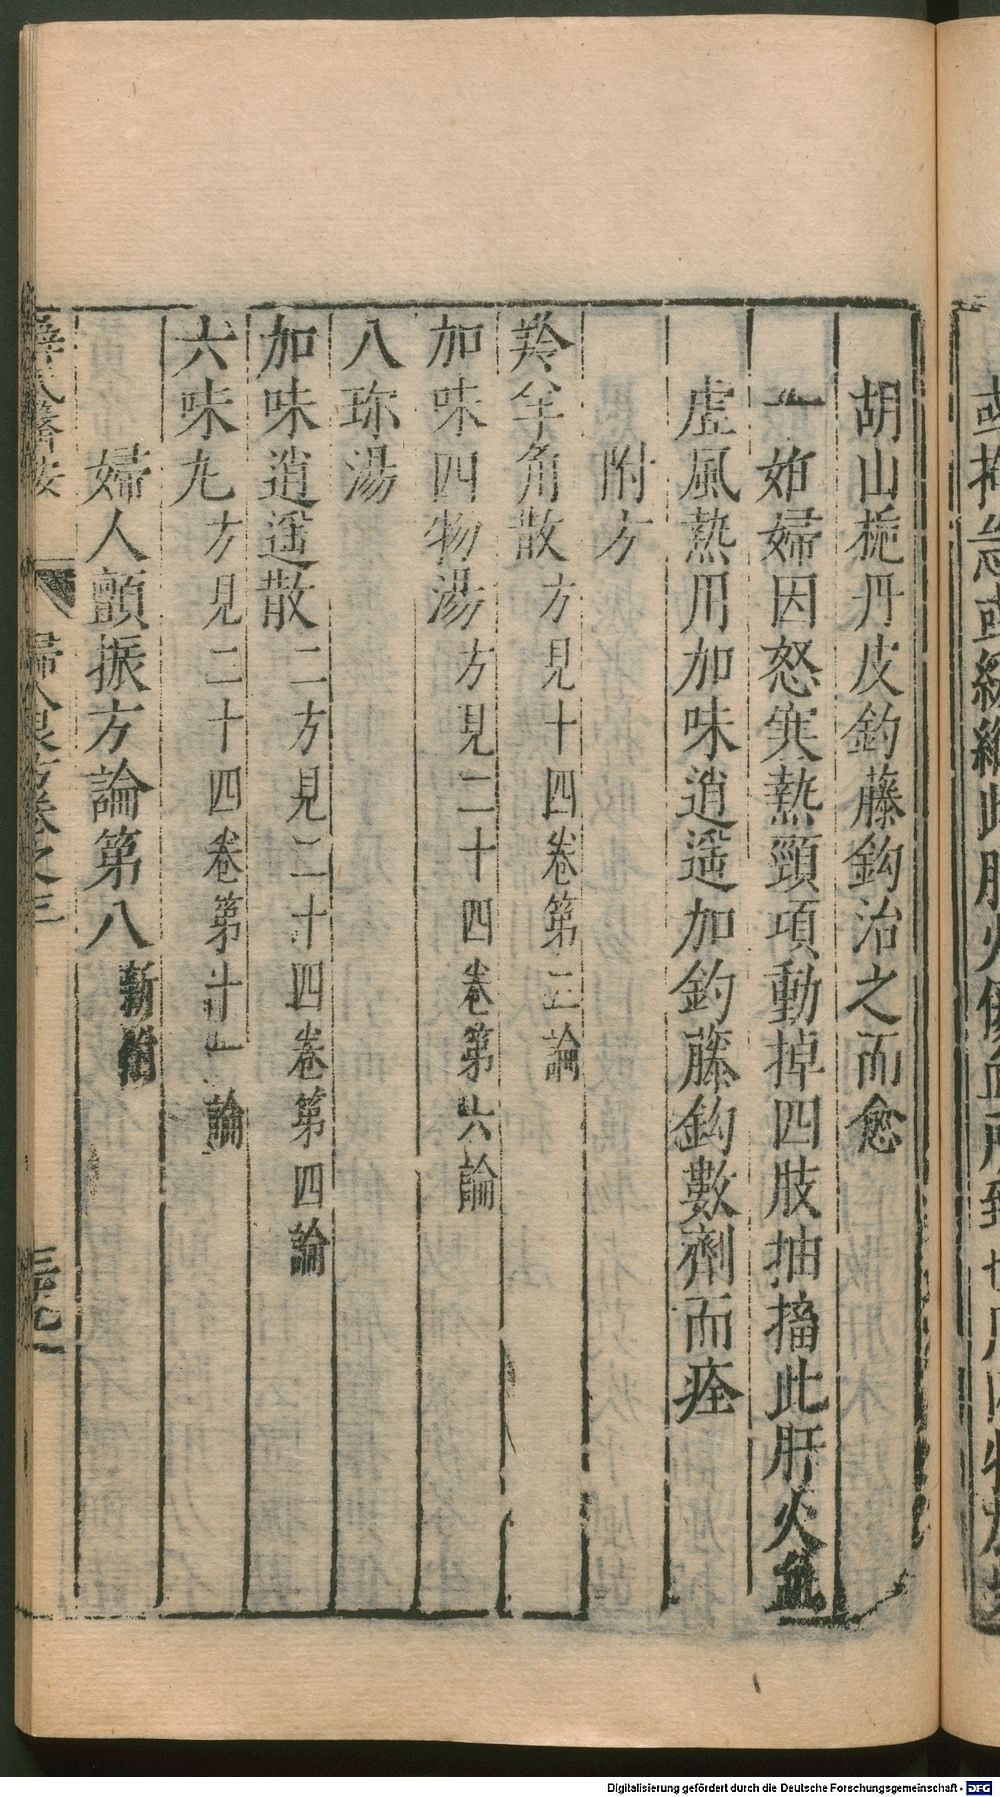 胡山梔丹皮釣藤鈎治之而愈
一婦因怒寒熱頸項動掉四肢抽搐此肝火血
虛風熱用加味逍遥加釣藤鈎數劑而痊
附方
羚羊角散方見十四卷第三論
加味四物湯方見二十四卷第六論
八珎湯
加味逍遥散二方見二十四卷第四論
六味丸方見二十四卷第十一論
婦人顫振方論第八新
薛氏醫按 婦人良方卷之三
Digitalisierung gefördert durch die Deutsche Forschungsgemeinschaft - DFG